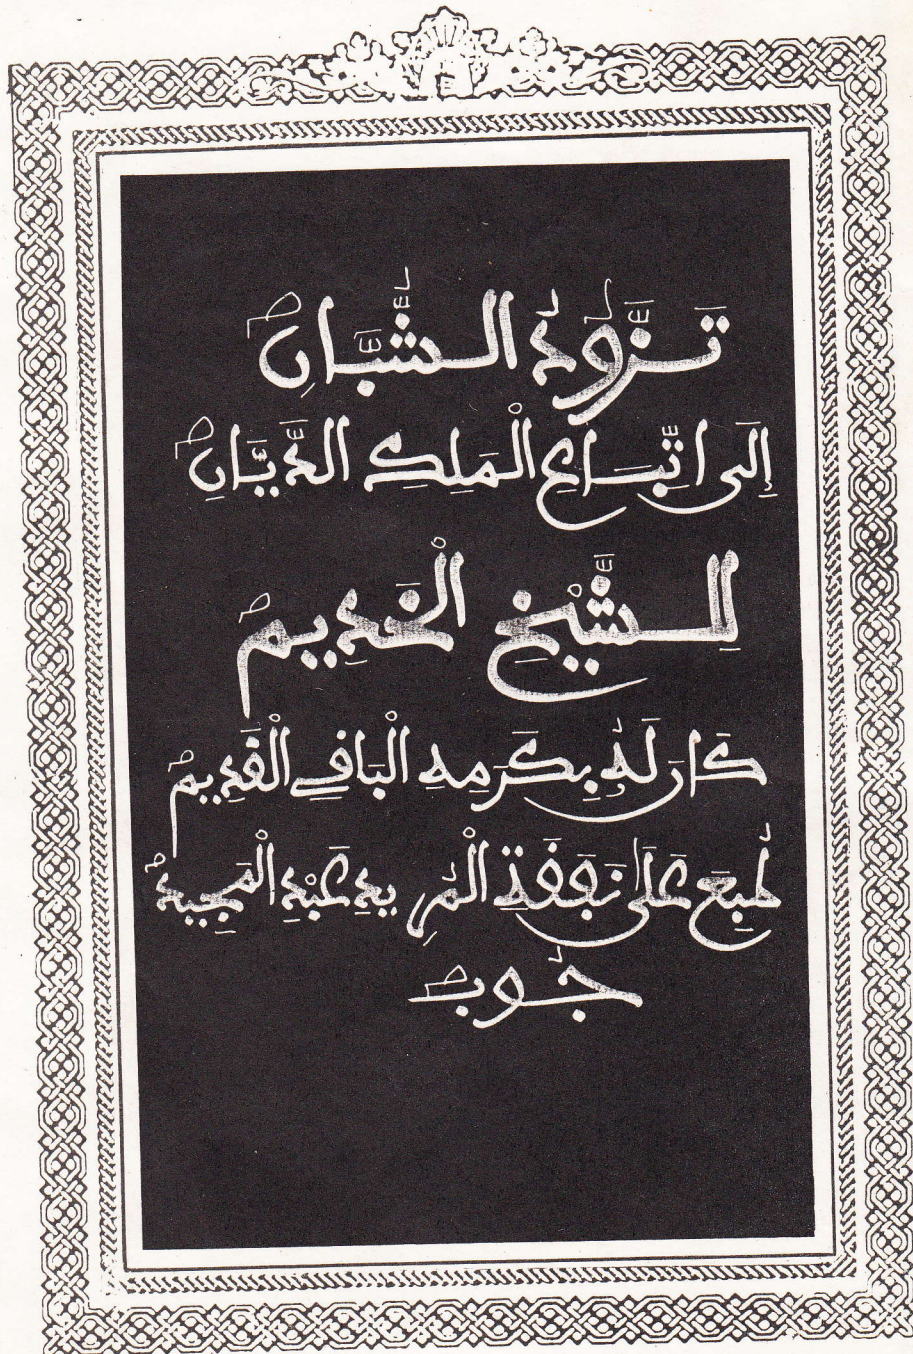 تَزَوُّدُ الشُّبَّانِ
إِلَى اتِّبَاعِ الْمَلِكِ الدَّيَّانِ
لِلشَّيْخِ الْخَدِيمِ
كَانَ لَهُ بِكَرَمِهِ الْبَاقِي الْقَدِيمُ
طُبِعَ عَلَى نَفَقَةِ الْمُرِيدِ عَبْدِ الْمَجِيدِ
جُوبْ